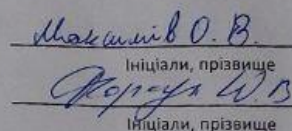 Максимів О. В.
Ініціали, прізвище
Ініціали, прізвище